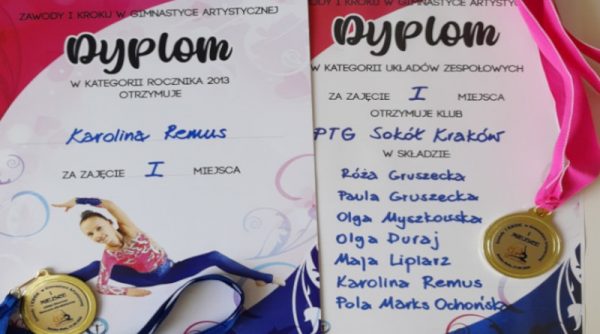 ZAWODY I KROKU W GIMNASTYCE ARTYSTYCZNEJ
Dyplom
W KATEGORII ROCZNIKA 2013
OTRZYMUJE
Karolina Remus
ZA ZAJĘCIE I MIEJSCA
ZAWODY I KROKU W GIMNASTYCE ARTYSTYCZNEJ
Dyplom
W KATEGORII UKŁADÓW ZESPOŁOWYCH
ZA ZAJĘCIE I MIEJSCA
OTRZYMUJE KLUB
PTG Sokół Kraków
W SKŁADZIE:
Róża Gruszecka
Paula Gruszecka
Olga Myszkowska
Olga Duraj
Maja Liplarz
Karolina Remus
Pola Marks Ochońsk